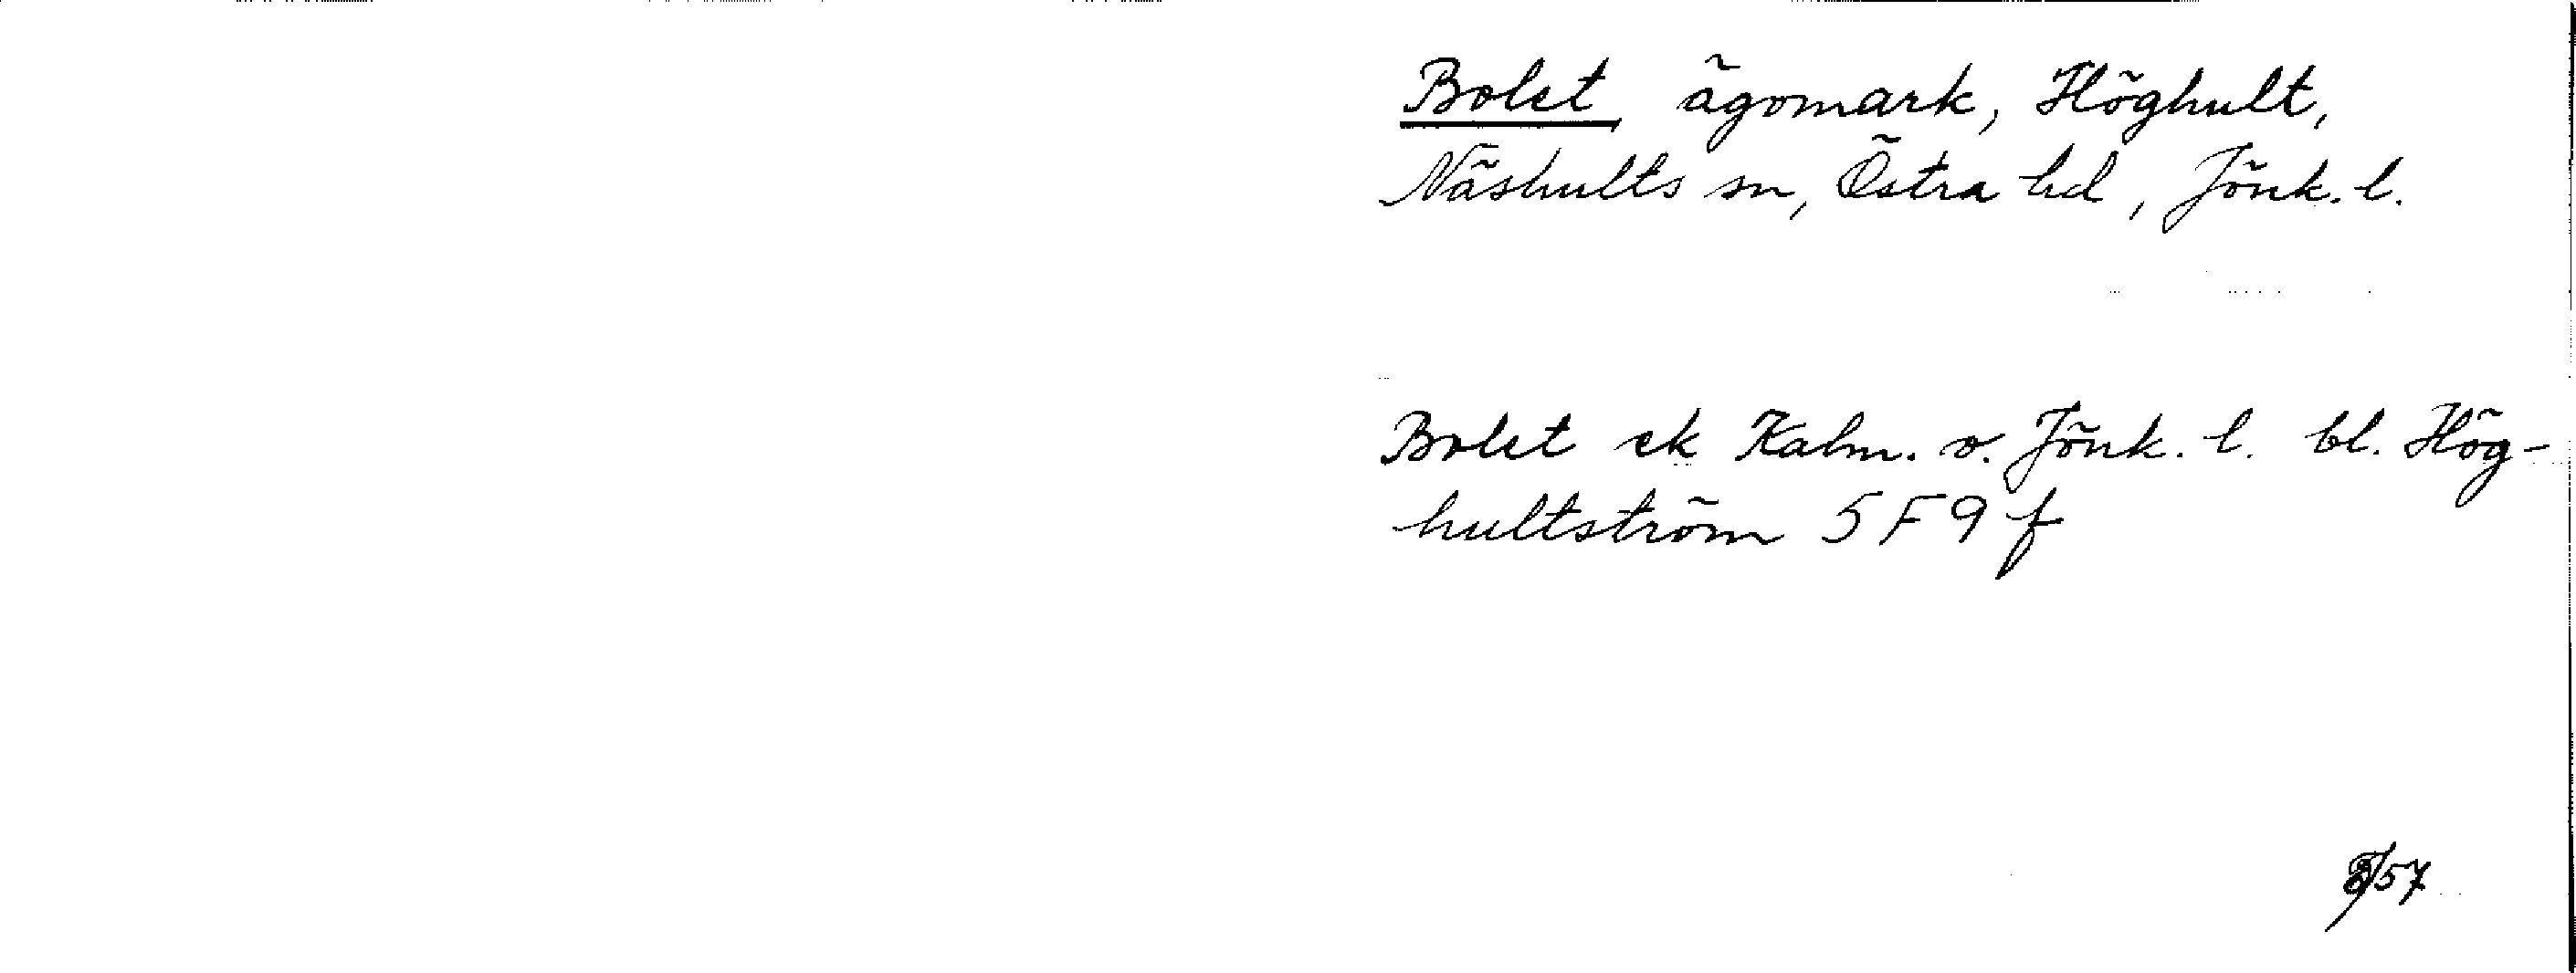 Bolet, ägomark, Höghult,
Näshults sn, Östra hd, Jönk. l.
Bolet ek Kalm. o. Jönk. l. bl. Hög-
hultström 5 F 9 f
57